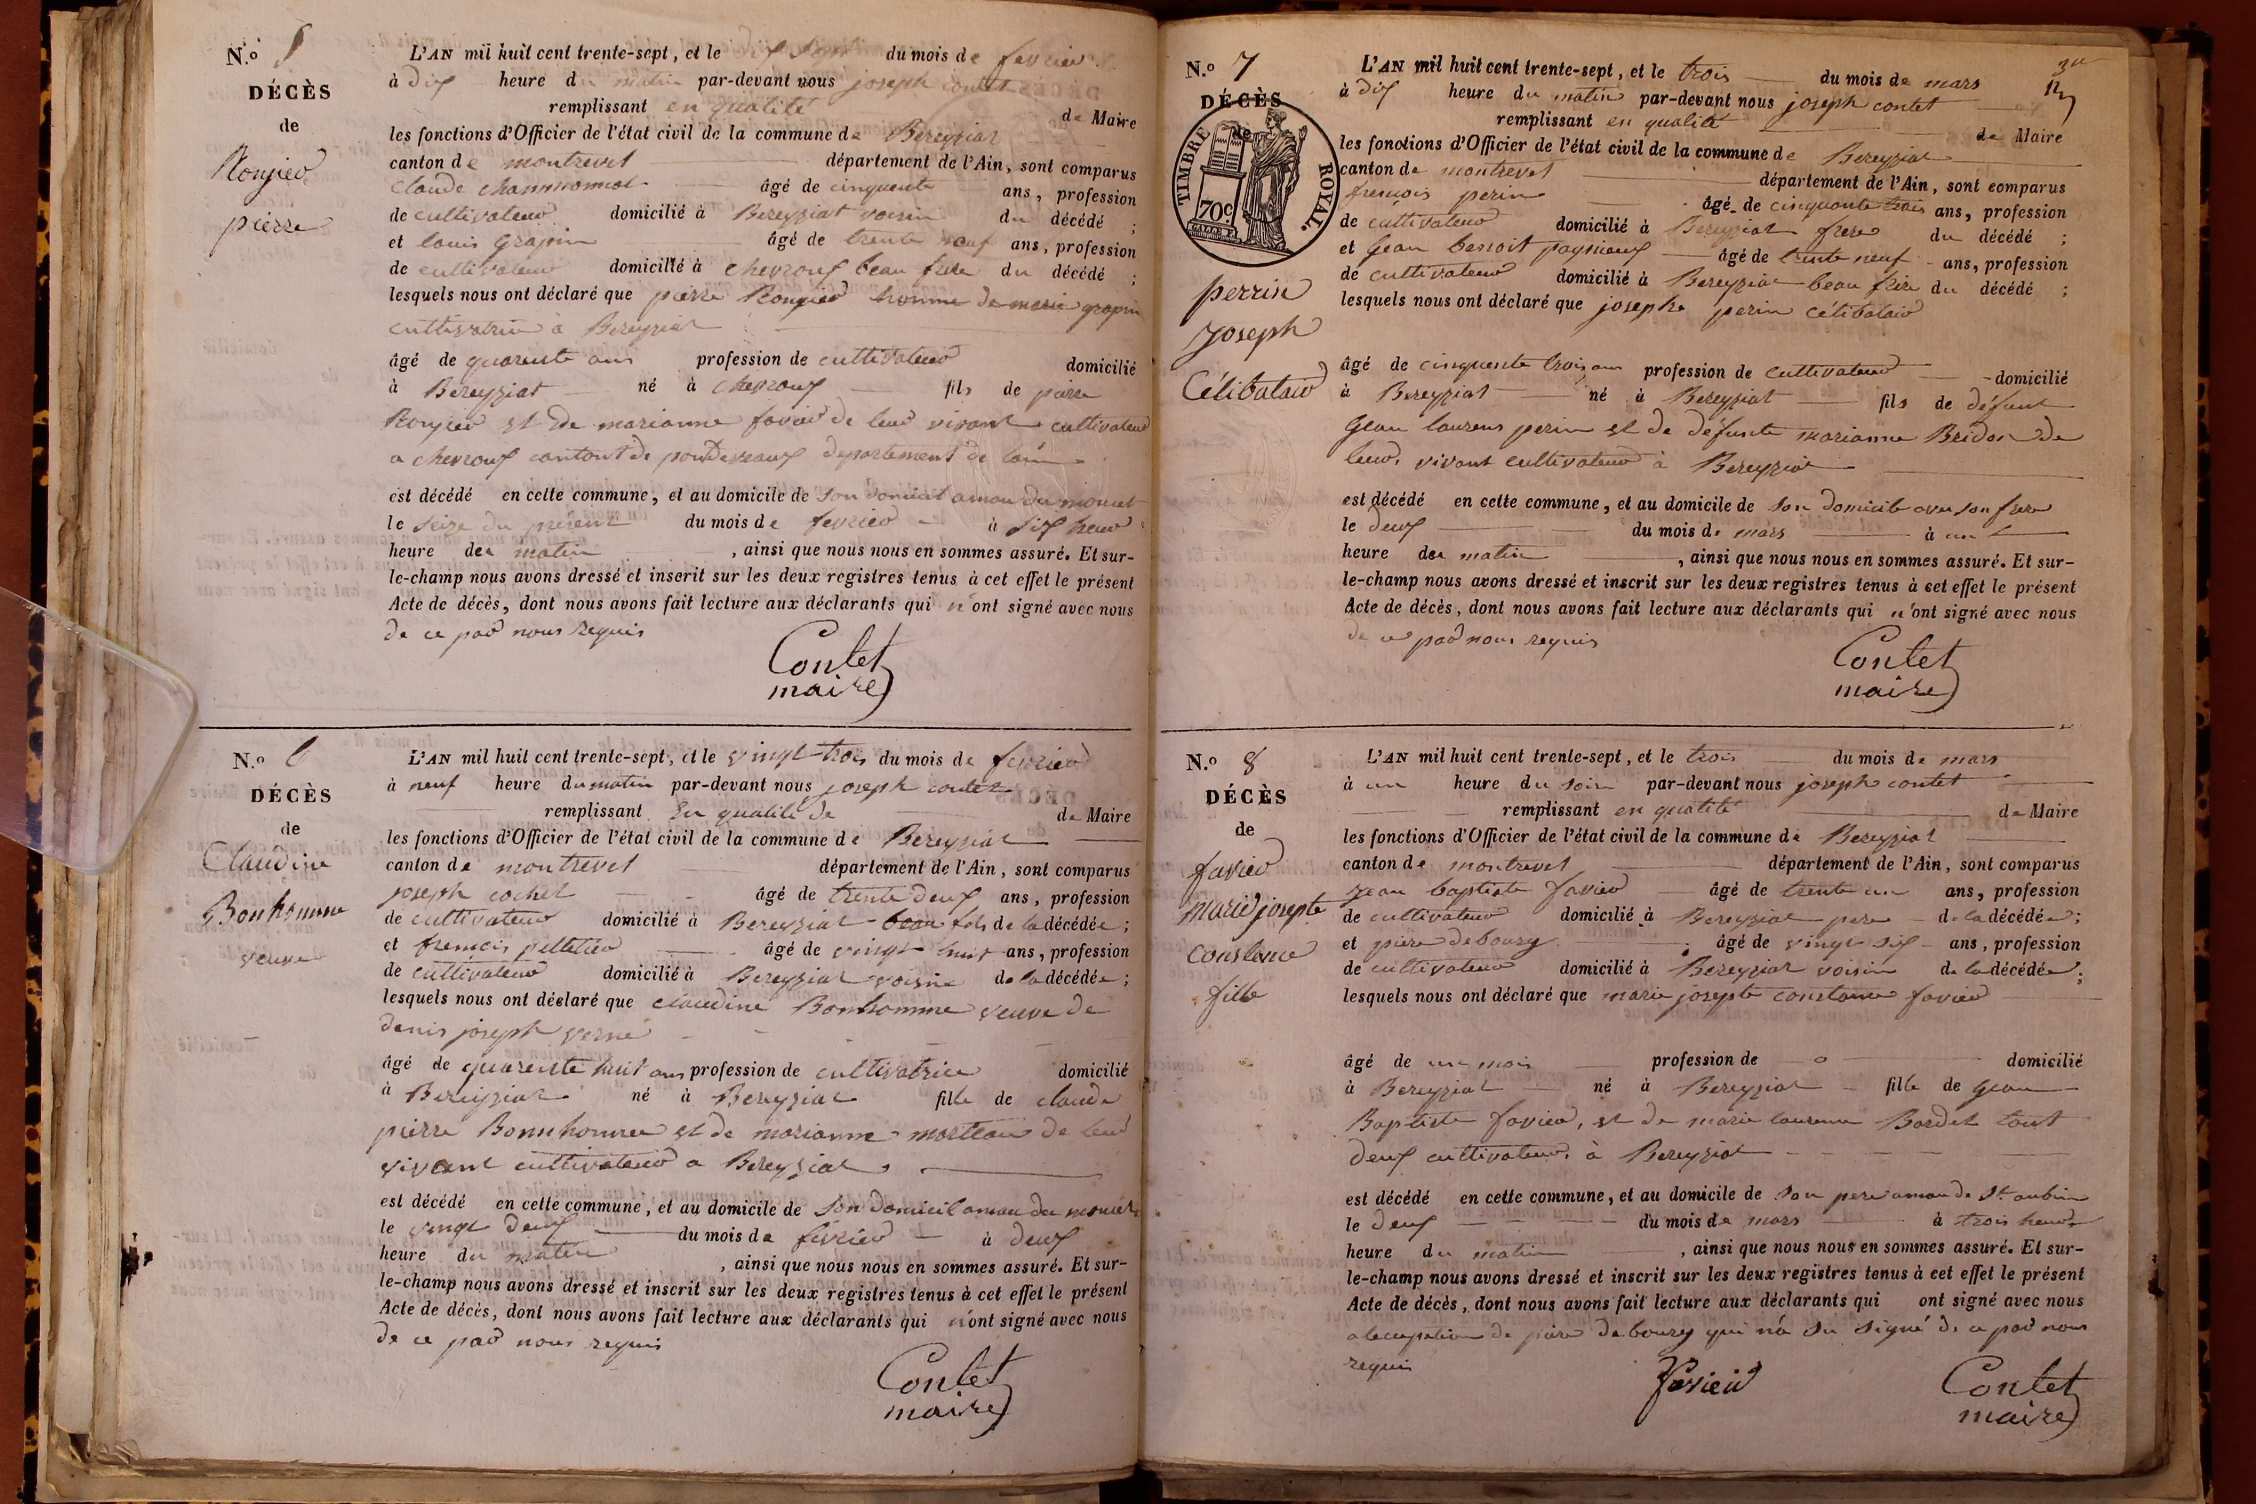 N.º 5
DÉCÈS
de
Rongier
pierre
L'AN mil huit cent trente-sept, et le dix sept du mois de fevrier
à dix heure du matin par-devant nous joseph contet
remplissant en qualité de Maire
les fonctions d'Officier de l'état civil de la commune de Bereyziat
canton de montrevel département de l'Ain, sont comparus
Claude âgé de cinquante ans, profession
de cultivateur domicilié à Bereyziat voisin du décédé ;
et louis grapin âgé de trente neuf ans, profession
de cultivateur domicilié à chevroux beau frere du décédé ;
lesquels nous ont déclaré que pierre Rongier homme de marie grapin
cultivatrice à Bereyziat
âgé de quarente ans profession de cultivateur domicilié
à Bereyziat né à chevroux fils de pierre
Rongier et de marianne favier de leur vivant cultivateur
a chevroux de departement de
est décédé en cette commune, et au domicile de son domicil amau du moncet
le seize du présent du mois de fevrier à six heur
heure des matin, ainsi que nous nous en sommes assuré. Et sur-
le-champ nous avons dressé et inscrit sur les deux registres tenus à cet effet le présent
Acte de décès, dont nous avons fait lecture aux déclarants qui n'ont signé avec nous
de ce par nous requis
Contet
maire
N.º 6
DÉCÈS
de
Claudine
Bonhomme
veuve
L'AN mil huit cent trente-sept, et le vingt-trois du mois de fevrier
à neuf heure du matin par-devant nous joseph contet
remplissant En qualité de de Maire
les fonctions d'Officier de l'état civil de la commune de Bereyziat
canton de montrevel département de l'Ain, sont comparus
joseph cochet âgé de trente deux ans, profession
de cultivateur domicilié à Bereyziat beau fils de la décédée ;
et francois pelletier âgé de vingt huit ans, profession
de cultivateur domicilié à Bereyziat voisin de la décédée ;
lesquels nous ont déclaré que claudine Bonhomme veuve de
denis joseph verne
âgé de quarente huit ans profession de cultivatrice domicilié
à Bereyziat né à Bereyziat fille de claude
pierre Bonnhomme et de marianne morteau de leur
vivant cultivateur a Bereyziat
est décédé en cette commune, et au domicile de son domicil amau du moncet
le vingt deux du mois de fevrier à deux
heure du matin, ainsi que nous nous en sommes assuré. Et sur-
le-champ nous avons dressé et inscrit sur les deux registres tenus à cet effet le présent
Acte de décès, dont nous avons fait lecture aux déclarants qui n'ont signé avec nous
de ce par nous requis
Contet
maire
N.º 7
DÉCÈS
de
TIMBRE ROYAL.
70c.
perrin
joseph
Célibatair
L'AN mil huit cent trente-sept, et le trois du mois de mars
à dix heure du matin par-devant nous joseph contet
remplissant en qualité de Maire
les fonctions d'Officier de l'état civil de la commune de Bereyziat
canton de montrevel département de l'Ain, sont comparus
francois perin âgé de cinquante trois ans, profession
de cultivateur domicilié à Bereyziat frere du décédé ;
et Gean benoit âgé de trente neuf ans, profession
de cultivateur domicilié à Bereyziat beau frere du décédé ;
lesquels nous ont déclaré que josephe perin célibatair
âgé de cinquente trois ans profession de cultivateur domicilié
à Bereyziat né à Bereyziat fils de défunt
Gean laurens perin et de défunte marianne Bridon de
leur vivant cultivateur à Bereyziat
est décédé en cette commune, et au domicile de son domicile avec son frere
le deux du mois de mars à un
heure des matin, ainsi que nous nous en sommes assuré. Et sur-
le-champ nous avons dressé et inscrit sur les deux registres tenus à cet effet le présent
Acte de décès, dont nous avons fait lecture aux déclarants qui n'ont signé avec nous
de ce par nous requis
Contet
maire
N.º 8
DÉCÈS
de
favier
marie josepte
constance
fille
L'AN mil huit cent trente-sept, et le trois du mois de mars
à un heure du soir par-devant nous joseph contet
remplissant en qualité de Maire
les fonctions d'Officier de l'état civil de la commune de Bereyziat
canton de montrevel département de l'Ain, sont comparus
jean baptiste favier âgé de trente un ans, profession
de cultivateur domicilié à Bereyziat pere de la décédée ;
et piere debourg âgé de vingt six ans, profession
de cultivateur domicilié à Bereyziat voisin de la décédée ;
lesquels nous ont déclaré que marie josepte constance favier
âgé de un mois profession de domicilié
à Bereyziat né à Bereyziat fille de Gean
Baptiste favier, et de marie laurence Bordet tout
deux cultivateur à Bereyziat
est décédé en cette commune, et au domicile de son pere amau de St. aubin
le deux du mois de mars à trois heur
heure du matin, ainsi que nous nous en sommes assuré. Et sur-
le-champ nous avons dressé et inscrit sur les deux registres tenus à cet effet le présent
Acte de décès, dont nous avons fait lecture aux déclarants qui ont signé avec nous
de piere debourg qui n'a su signé de ce par nous
requis
favier
Contet
maire